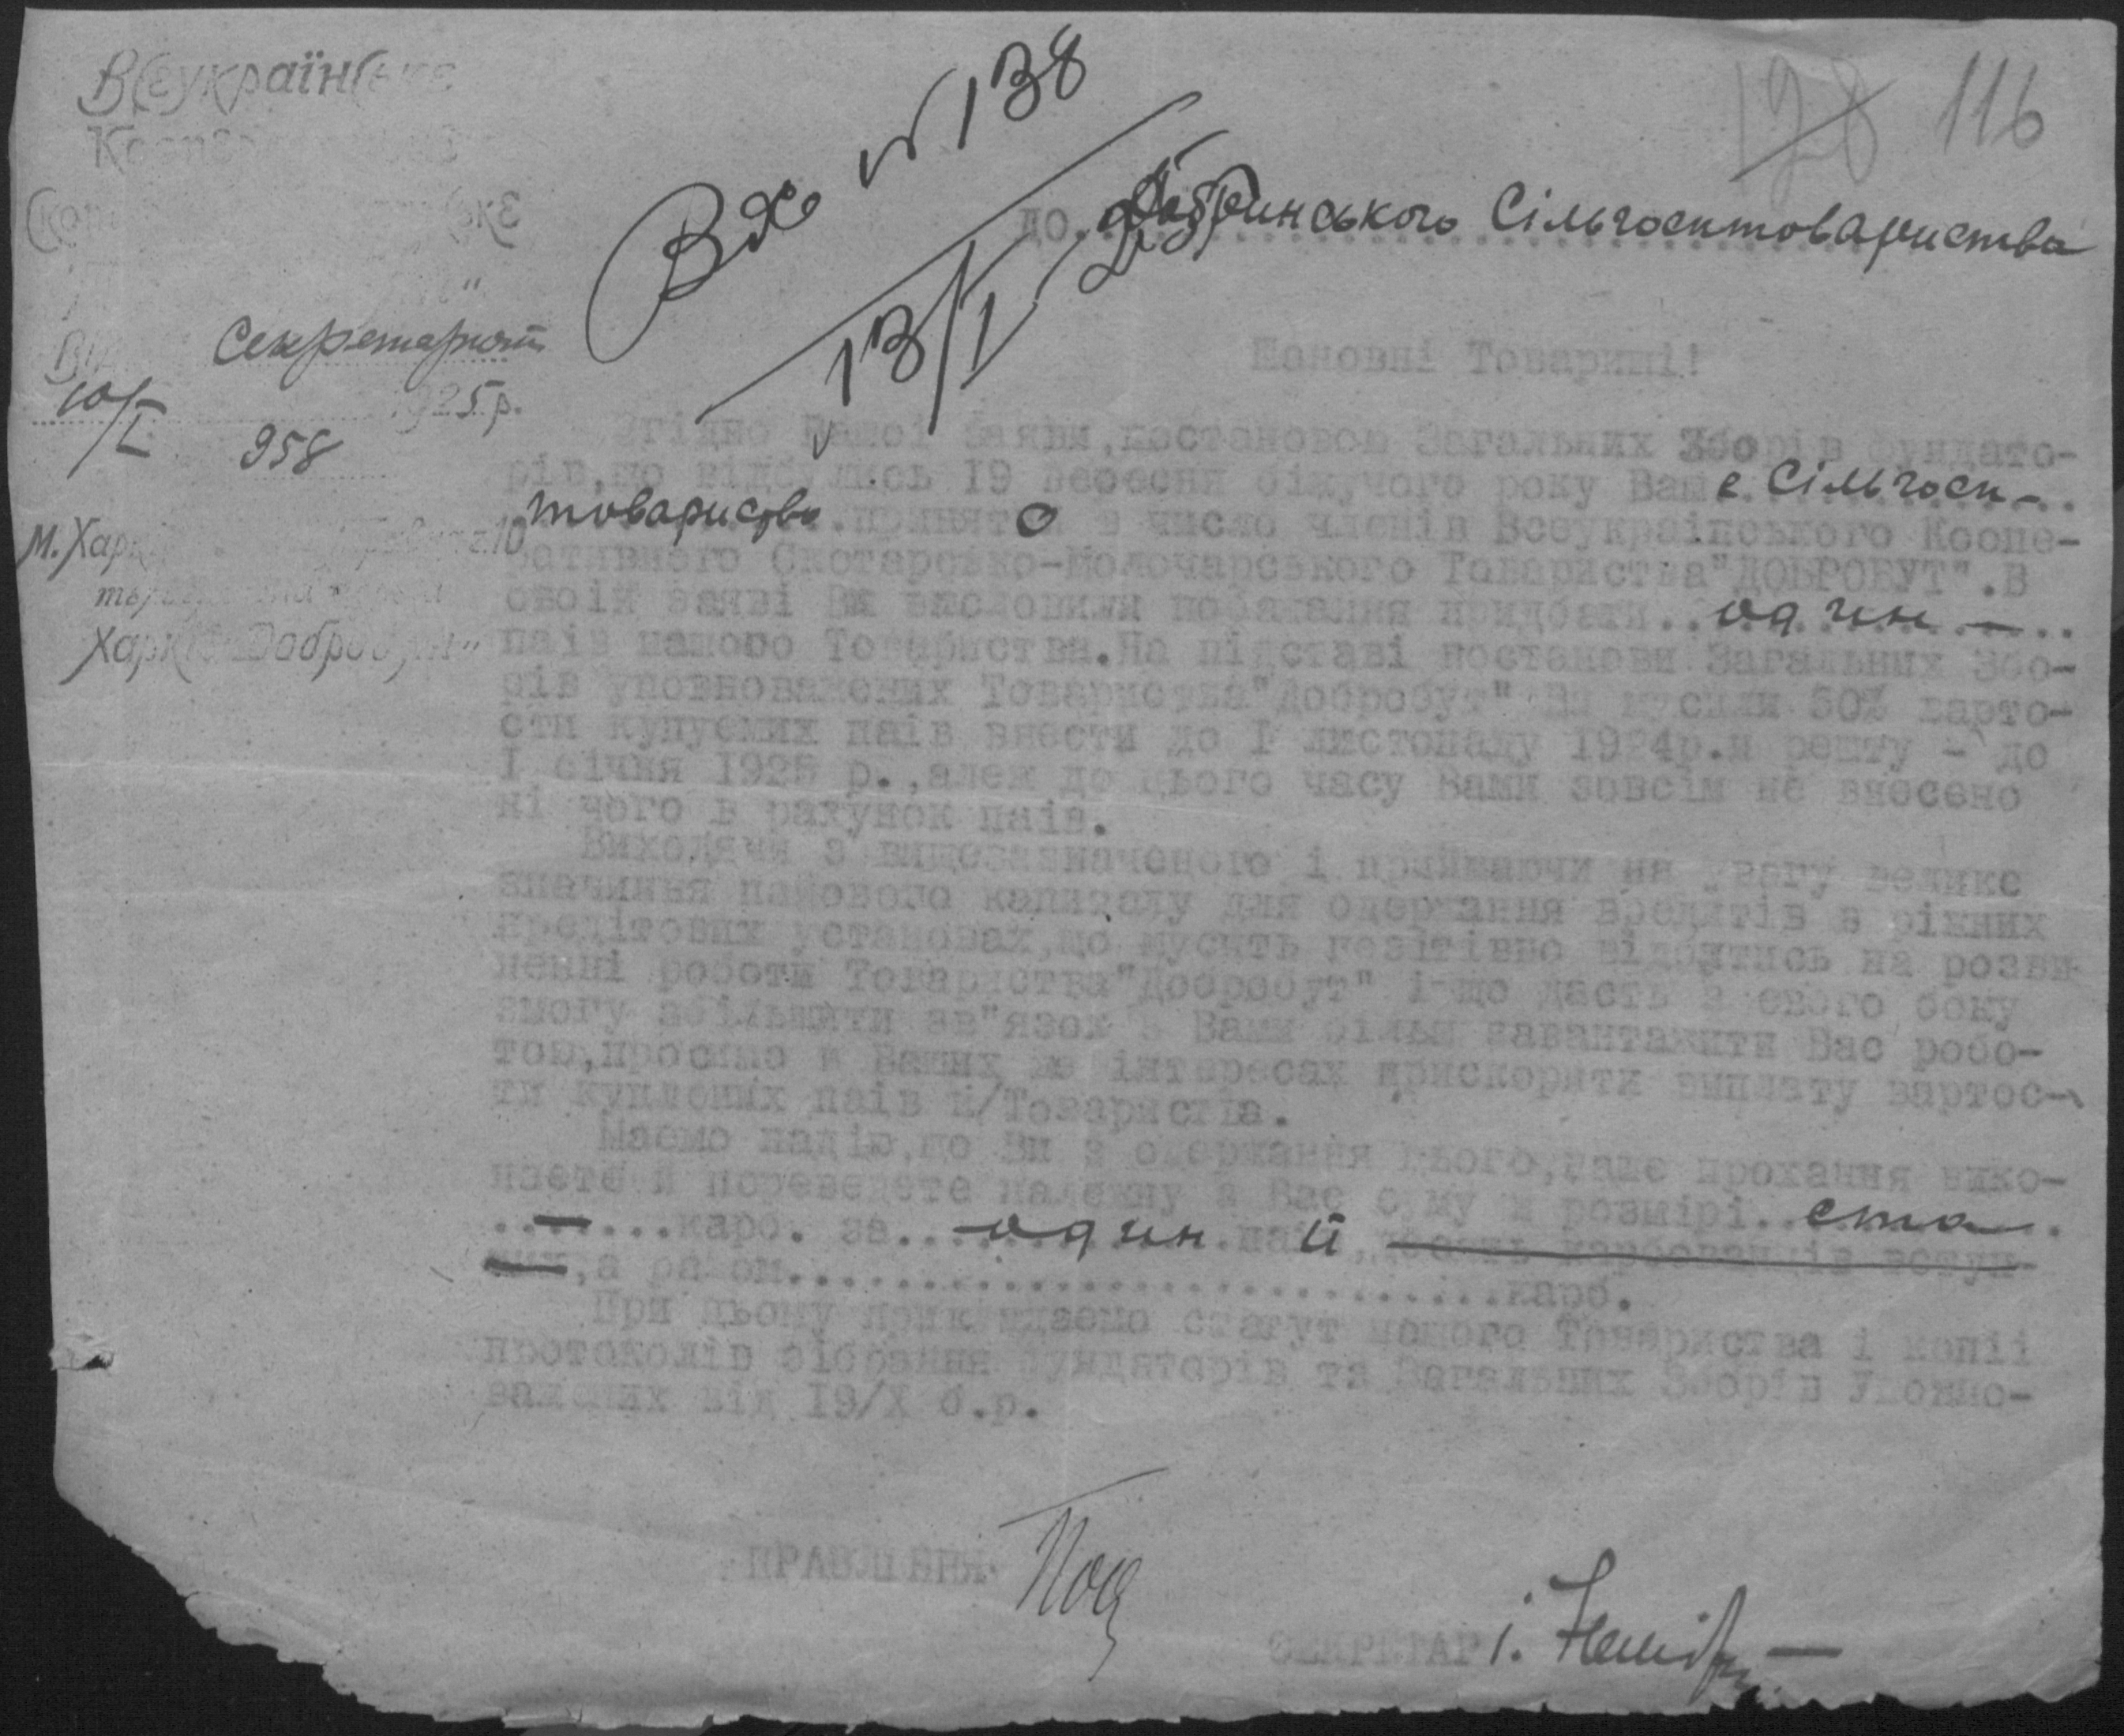 Всеукраїнське
Кооперативне
Вх № 138
13/I
128 116
до Добринського Сільгосптовариства
Секретаріат
10/I 1925 р.
958
м. Харків 10
Харків "Добробут"
Шановні Товариші!
Згідно Вашої заяви, постановою Загальних Зборів фундато-
рів, що відбулись 19 вересня біжучого року Ваше Сільгосп-
товариство принято в число членів Всеукраінського Коопе-
ративного Скотарсько-Молочарського Товариства "ДОБРОБУТ". В
своїй заяві Ви висловили побажання придбати.. один -
паїв нашого Товариства. На підставі постанови Загальних Збо-
рів уповноважених Товариства "Добробут" Ви мусили 50% варто-
сти купуємих паїв внести до I листопаду 1924р. й решту - до
I січня 1925 р., алеж до цього часу Вами зовсім не внесено
ні чого в рахунок паїв.
Виходячи з вищезазначеного і приймаючи на увагу велике
значіння пайового капиталу для одержання кредитів в ріжних
кредітових установах, що мусить позітівно відбитись на розви
ненні роботи Товариства "Добробут" і що дасть з свого боку
змогу збільшити зв"язок з Вами більш завантажити Вас робо-
тою, просимо в Ваших же інтересах прискорити виплату вартос-
ти куплених паїв н/Товариства.
Маємо надію, що Ви з одержання цього, наше прохання вико-
наєте й переведете належну з Вас суму в розмірі.. ста
.. - ....карб. за.... один й пай, десять карбованців вступ-
них, а разом..............................карб.
При цьому прикладаємо статут нашого Товариства і копії
протоколів зібрання фундаторів та Загальних Зборів Уповно-
важених від 19/X б.р.
ПРАВЛІННЯ
СЕКРЕТАР